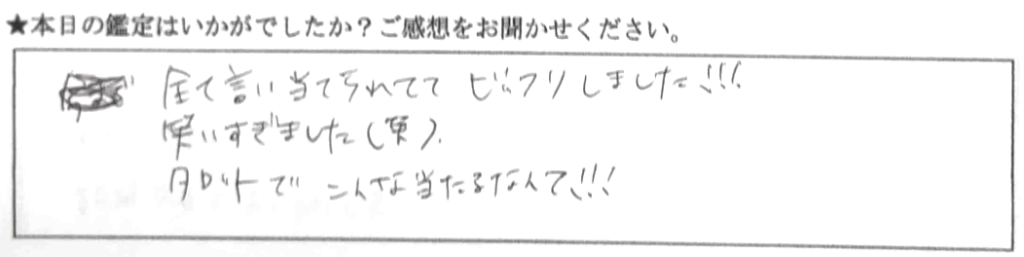 ★本日の鑑定はいかがでしたか？ご感想をお聞かせください。
全て言い当てられてて ビックリしました!!!
笑いすぎました(笑).
タロットで こんな当たるなんて!!!